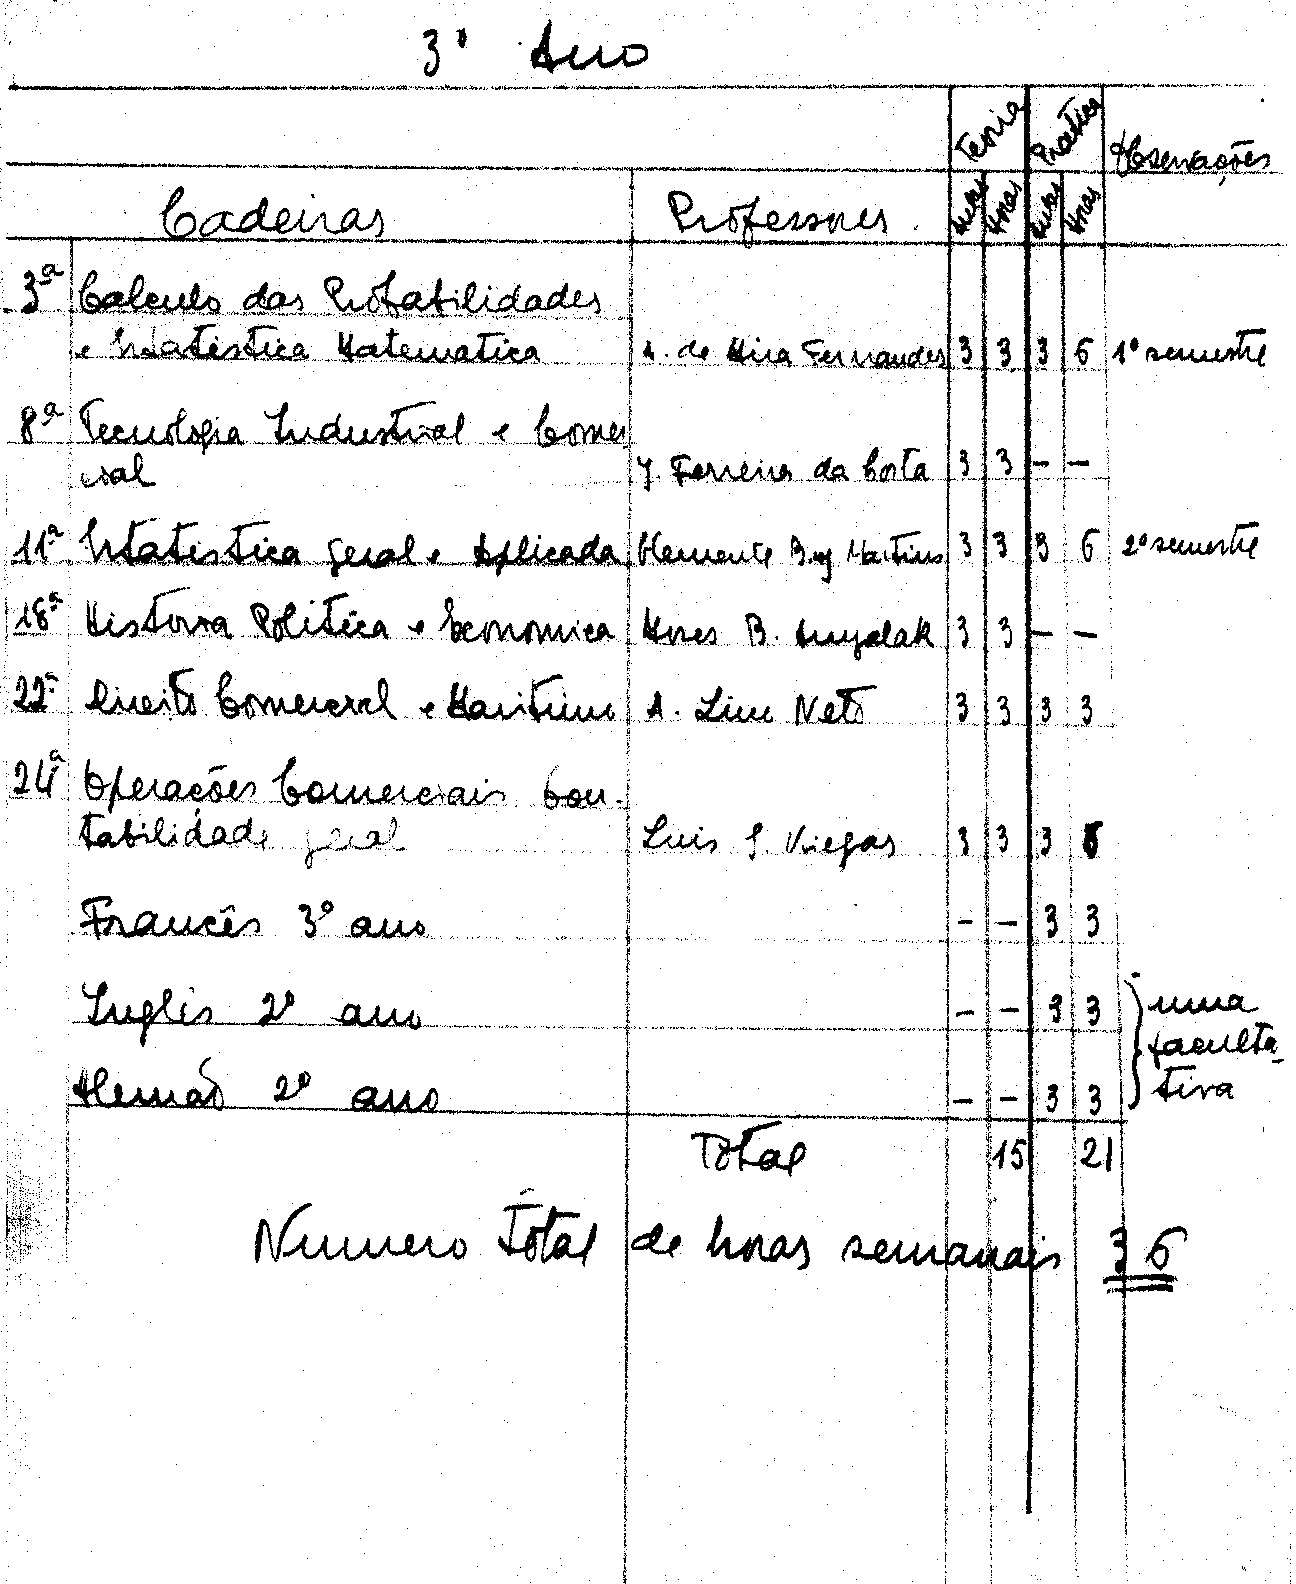 3º Ano
Teoria Pratica Observações
Cadeiras Professores Aulas Horas Aulas Horas
3ª Calculo das Probabilidades
e Estatistica Matematica A. de Mira Fernandes 3 3 3 6 1º semestre
8ª Tecnologia Industrial e Comer
cial J. Ferreira da Costa 3 3 – –
11ª Estatistica geral e Aplicada Clemente Martins 3 3 3 6 2º semestre
18ª Historia Politica e Economica Moses B. Amzalak 3 3 – –
22ª Direito Comercial e Maritimo A. Lino Neto 3 3 3 3
24ª Operações Comerciais Con-
tabilidade geral Luis Viegas 3 3 3
Francês 3º ano – – 3 3
Inglês 2º ano – – 3 3 uma
faculta
Alemão 2º ano – – 3 3 tiva
Total 15 21
Numero Total de horas semanais 36